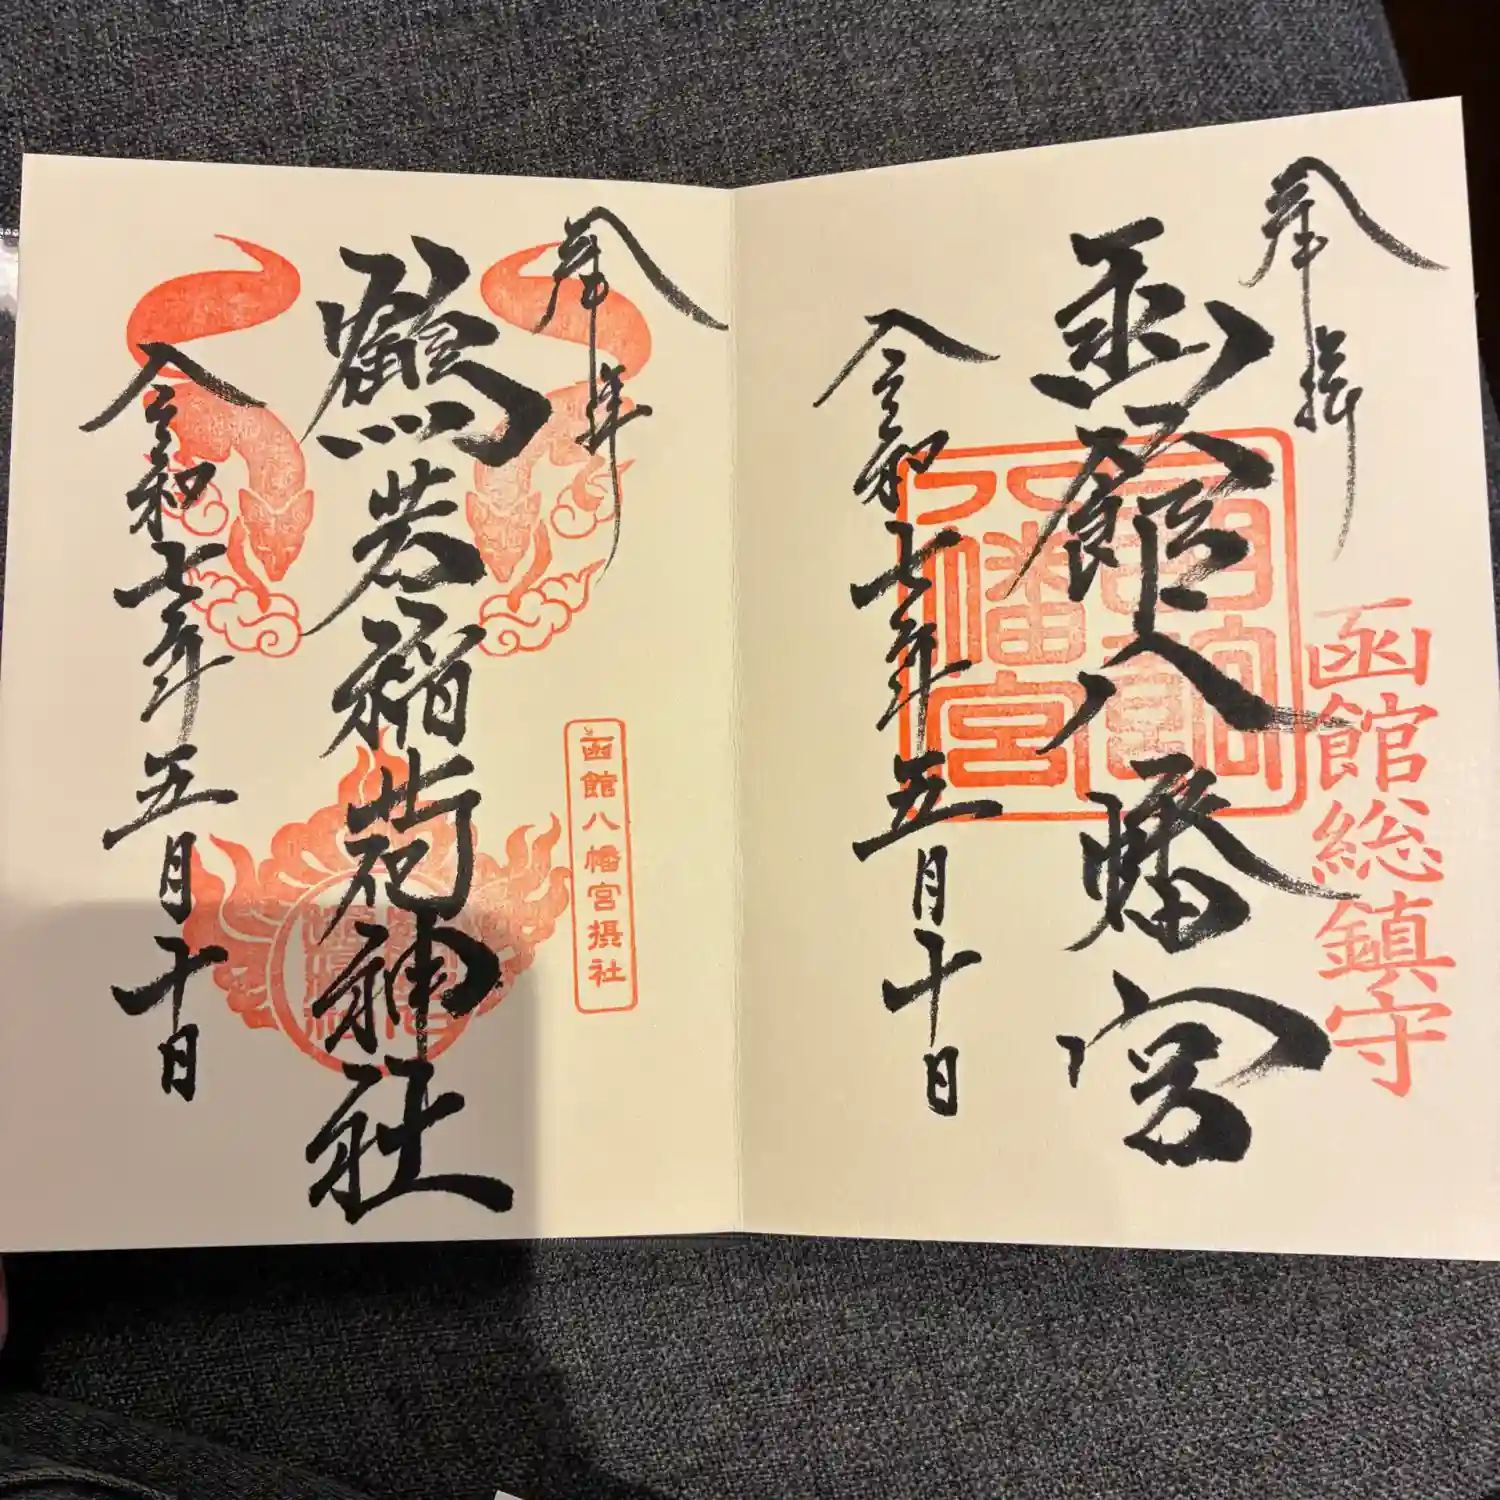 奉拝
函館総鎮守
函館八幡宮
令和七年五月十日
奉拝
函館八幡宮摂社
鶴若稲荷神社
令和七年五月十日